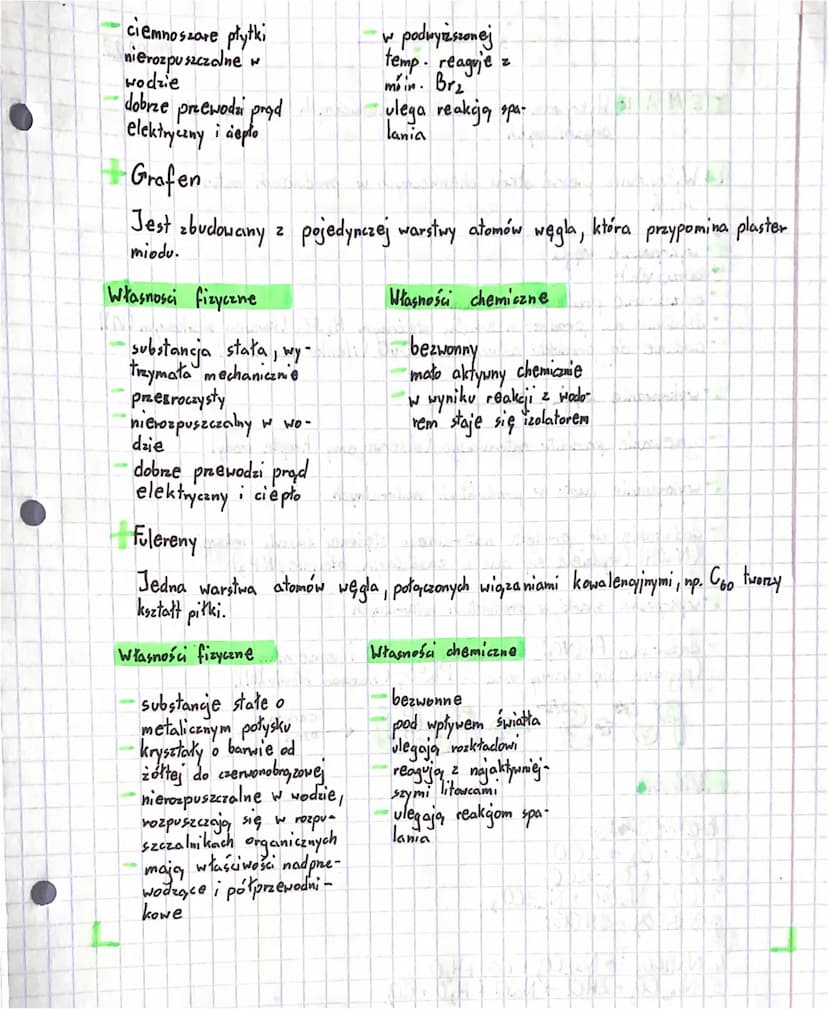 - ciemnoszare płytki
nierozpuszczalne w
wodzie
- dobrze przewodzi prąd
elektryczny i ciepło
- w podwyższonej
temp. reaguje z
min. Br₂
- ulega reakcją spa-
lania
+ Grafen
Jest zbudowany z pojedynczej warstwy atomów węgla, która przypomina plaster
miodu.
Własności fizyczne
- substancja stała, wy-
trzymała mechanicznie
- przezroczysty
- nierozpuszczalny w wo-
dzie
- dobrze przewodzi prąd
elektryczny i ciepło
Własności chemiczne
- bezwonny
- mało aktywny chemicznie
- w wyniku reakcji z wodo-
rem staje się izolatorem
+ Fulereny
Jedna warstwa atomów węgla, połączonych wiązaniami kowalencyjnymi, np. C₆₀ tworzy
kształt piłki.
Własności fizyczne
- substancje stałe o
metalicznym połysku
- kryształy o barwie od
żółtej do czerwonobrązowej
- nierozpuszczalne w wodzie,
rozpuszczają się w rozpu-
szczalnikach organicznych
- mają właściwości nadprze-
wodzące i półprzewodni-
kowe
Własności chemiczne
- bezwonne
- pod wpływem światła
ulegają rozkładowi
- reagują z najaktywniej-
szymi litowcami
- ulegają reakcjom spa-
lania